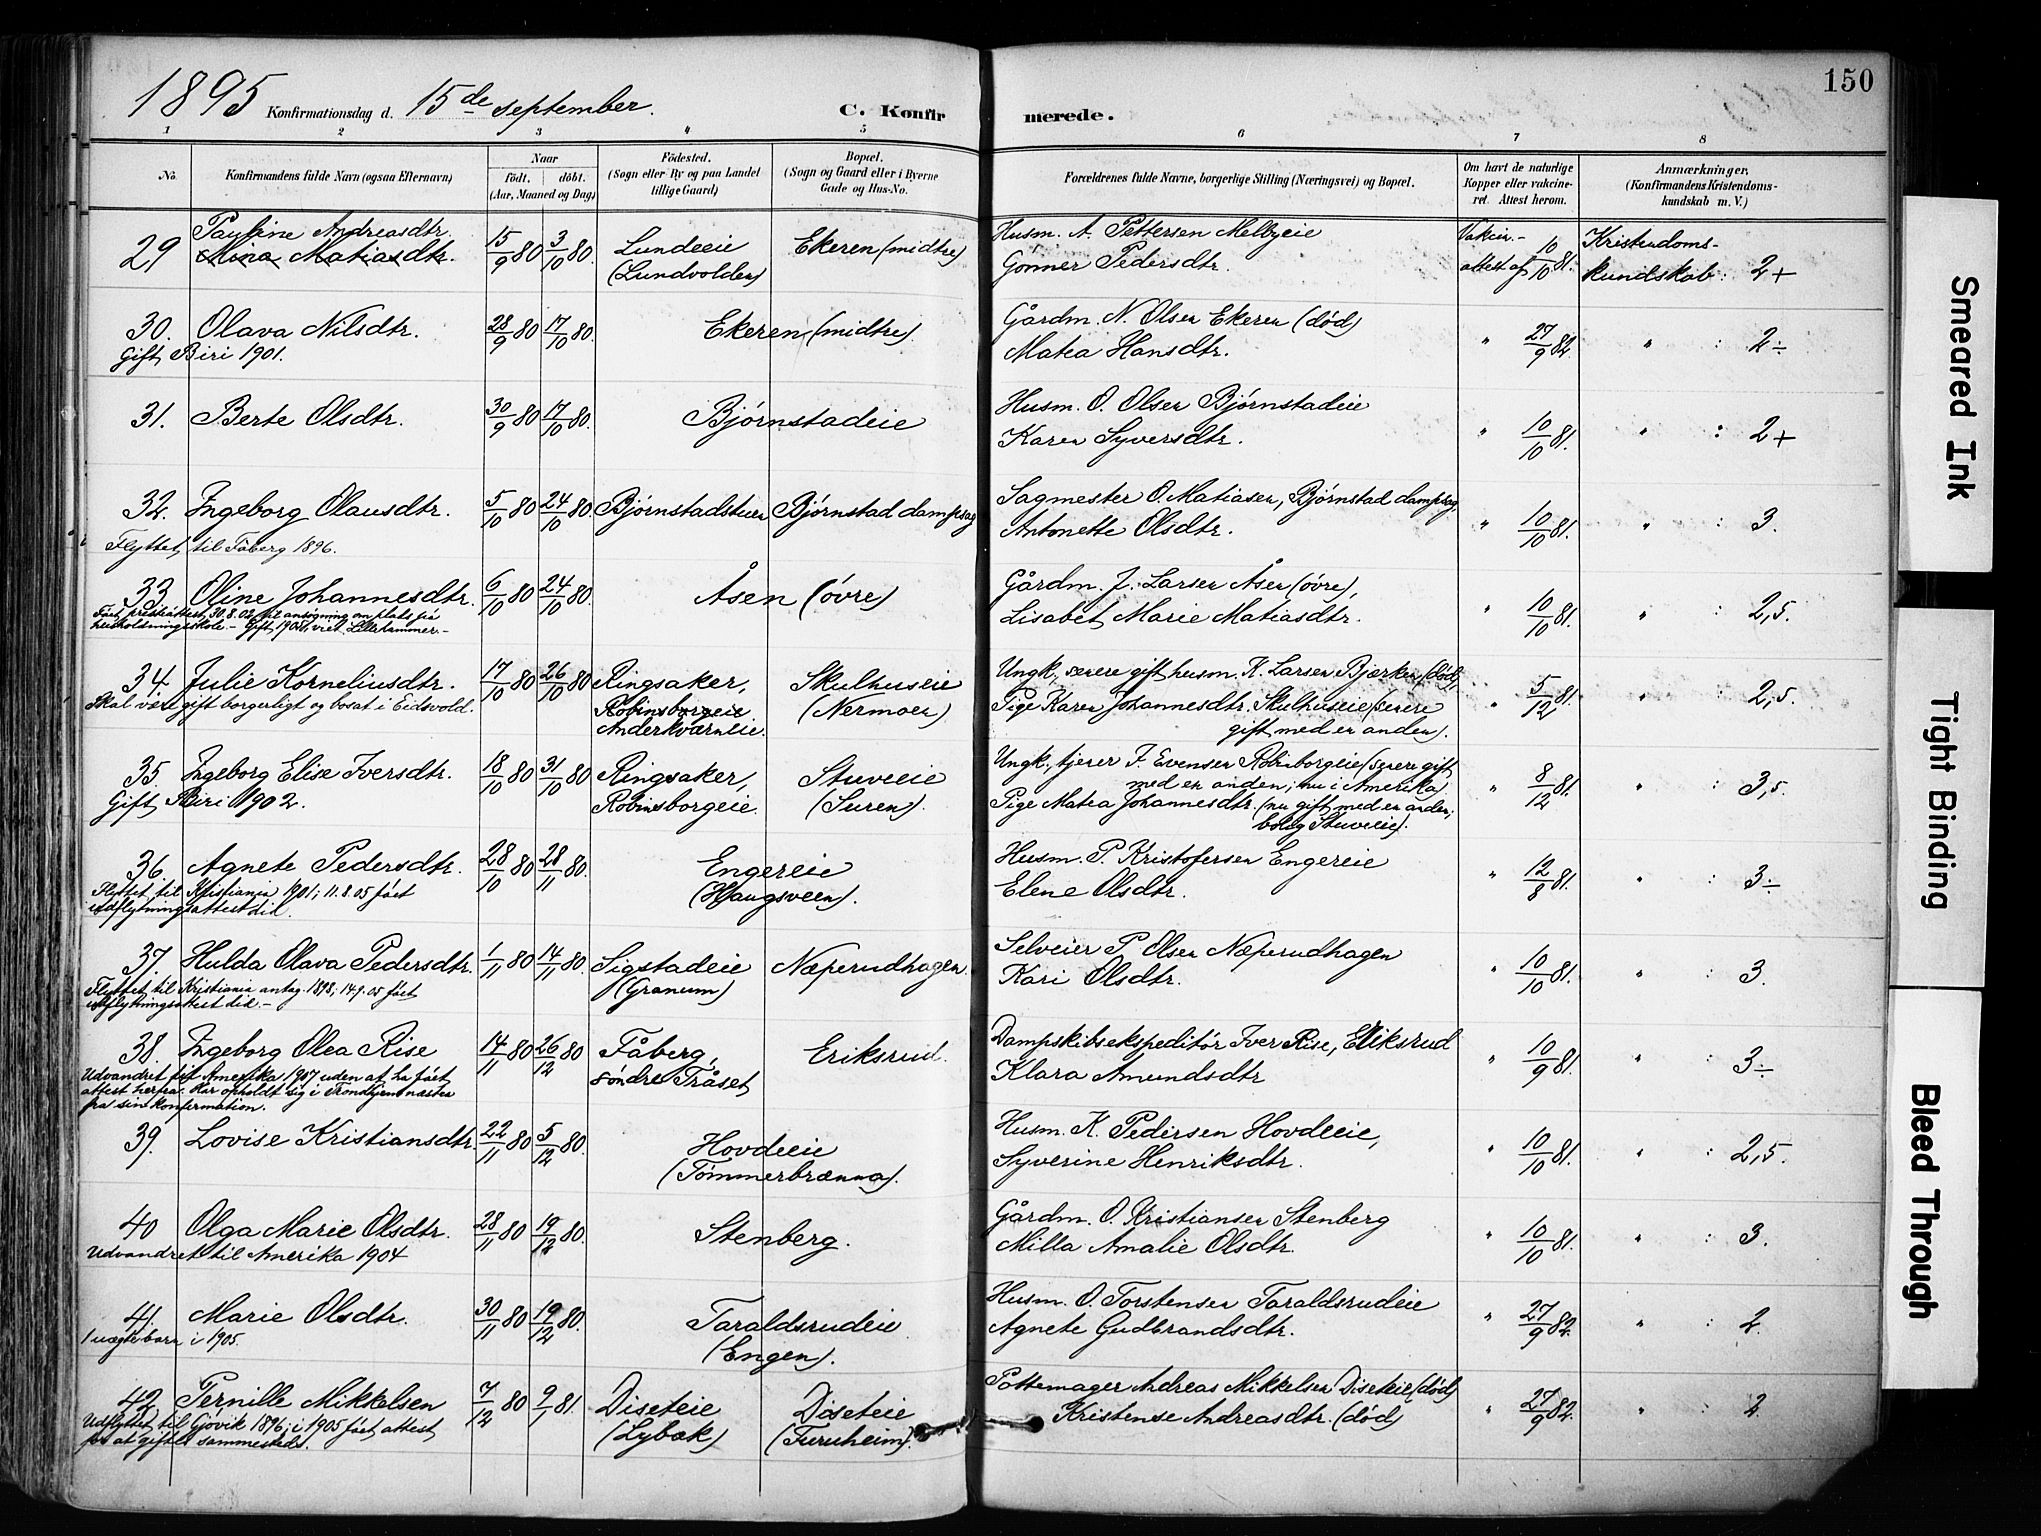 1895 Konfirmationsdag d. 15de september. C. Konfirmerede. 150
1 2 3 4 5 6 7 8
No. Konfirmandens fulde Navn (ogsaa Efternavn) Naar födt. döbt. (Aar, Maaned og Dag) Födested. (Sogn eller By og paa Landet tillige Gaard) Bopæl. (Sogn og Gaard eller i Byerne Gade og Hus-No. Forældrenes fulde Navne, borgerlige Stilling (Næringsvei) og Bopæl. Om havt de naturlige Kopper eller vakcineret. Attest herom. Anmærkninger. (Konfirmandens Kristendomskundskab m. V.)
29 Pauline Andreasdtr. Mina Matiasdtr. 15/9 80 3/10 80. Lundeeie (Lundvolden) Ekeren (midtre) Husm. A. Pettersen Melbyeie
Gonner Pedersdtr. Vakcin.-attest af 10/10 81. Kristendoms-kundskab: 2+
30. Olava Nilsdtr. 28/9 80 17/10 80. Ekeren (midtre). Gårdm. N. Olsen Ekeren (død)
Gift, Biri 1901. Matea Hansdtr. " 27/9 82. " : 2÷
31. Berte Olsdtr. 30/9 80 17/10 80. Bjørnstadeie Husm. O. Olsen Bjørnstadeie
Karen Syversdtr. " 10/10 81. " : 2+
32. Ingeborg Olausdtr. 5/10 80 24/10 80. Bjørnstadstuen Bjørnstad dampsag Sagmester O. Matiasen, Bjørnstad dampsag,
Flyttet til Fåberg 1896. Antonette Olsdtr. " 10/10 81. " : 3.
33 Oline Johannesdtr. 6/10 80 24/10 80. Åsen (øvre) Gårdm. J. Larsen Åsen (øvre),
Fået presteattest, 30.8.02, til ansøgning om plads på
husholdningsskole.- Gift, 1905, viet Lillehammer.-
Lisabet Marie Matiasdtr. " 10/10 81. " : 2,5.
34 Julie Korneliusdtr. 17/10 80 26/10 80 Ringsaker, Robinsborgeie Anderkværneie. Skulhuseie (Nermoen) Ungk., senere gift husm. K. Larsen Bjerken (død),
Skal være gift borgerligt og bosat i Eidsvold. Pige Karen Johannesdtr. Skulhuseie (senere
gift med en anden). " 5/12 81. " : 2,5.
35 Ingeborg Elise Iversdtr. 18/10 80 31/10 80 Ringsaker, Robinsborgeie. Stuveeie (Suren). Ungk., tjener I. Evensen Robinborgeie (senere gift
Gift, Biri 1902. med en anden; nu i Amerika)
Pige Matea Johannesdtr. (nu gift med en anden;
bolig Stuveeie). " 8/12 81. " : 3,5.
36. Agnete Pedersdtr. 28/10 80 28/11 80. Engereie (Haugsveen). Husm. P. Kristofersen Engereie
Flyttet til Kristiania 1901; 11.8.05 fået
udflytningsattest did. Elene Olsdtr. " 12/8 81. " : 3÷
37. Hulda Olava Pedersdtr. 1/11 80 14/11 80. Sigstadeie (Granum) Næperudhagen. Selveier P. Olsen Næperudhagen
Flyttet til Kristiania antag. 1898; 14.9.05 fået
udflytningsattest did.- Kari Olsdtr. " 10/10 81. " : 3.
38. Ingeborg Olea Rise 14/11 80 26/12 80 Fåberg, søndre Tråset Eriksrud. Dampskibsekspeditør Iver Rise, Eriksrud
Udvandret til Amerika 1907 uden at ha fået
attest herfra. Har opholdt sig i Trondhjem næsten
fra sin konfirmation. Klara Amundsdtr " 10/9 81. " : 3÷
39. Lovise Kristiansdtr. 22/11 80 5/12 80. Hovdeeie (Tømmerbrænna). Husm. K. Pedersen Hovdeeie,
Syverine Henriksdtr. " 10/10 81. " : 2,5.
40 Olga Marie Olsdtr. 28/11 80 19/12 80. Stenberg. Gårdm. O. Kristiansen Stenberg
Udvandret til Amerika 1904 Milla Amalie Olsdtr. " 10/10 81. " : 3.
41. Marie Olsdtr. 30/11 80 19/12 80. Taraldsrudeie (Engen). Husm. O. Torstensen Taraldsrudeie
1 uægte barn i 1905. Agnete Gudbrandsdtr. " 27/9 82. " : 2.
42. Pernille Mikkelsen 7/12 80 9/1 81. Diseteie (Lybæk) Diseteie (Furuheim). Pottemager Andreas Mikkelsen Diseteie (død)
Udflyttet til Gjøvik 1896; i 1905 fået attest
for at giftes sammesteds. Kristense Andreasdtr. (død) " 27/9 82. " : 2.
Smeared Ink
Tight Binding
Bleed Through